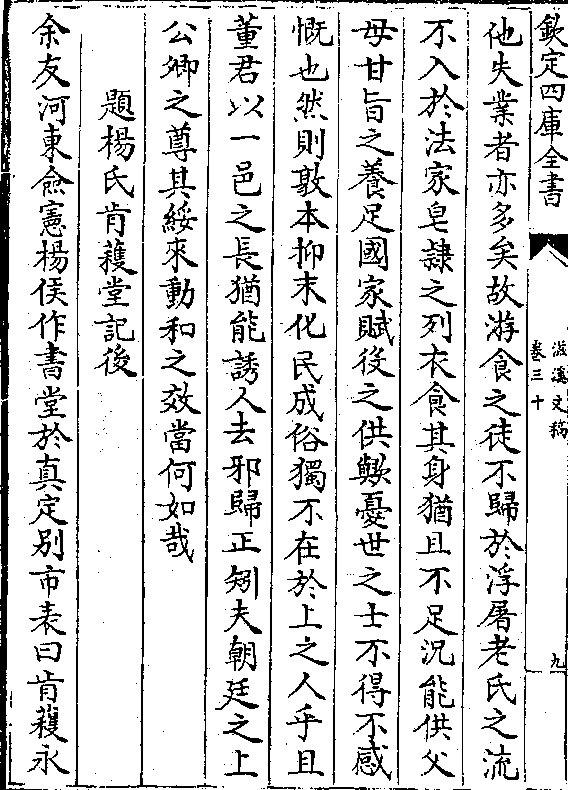 欽定四庫全書
滋溪文稿
卷三十
九
他失業者亦多矣故游食之徒不歸於浮屠老氏之流
不入於法家皂隷之列衣食其身猶且不足況能供父
母甘旨之養足國家賦役之供歟憂世之士不得不感
慨也然則敦本抑末化民成俗獨不在於上之人乎且
董君以一邑之長猶能誘人去邪歸正矧夫朝廷之上
公卿之尊其綏來動和之效當何如哉
題楊氏肯穫堂記後
余友河東僉憲楊侯作書堂於真定别市表曰肯穫永